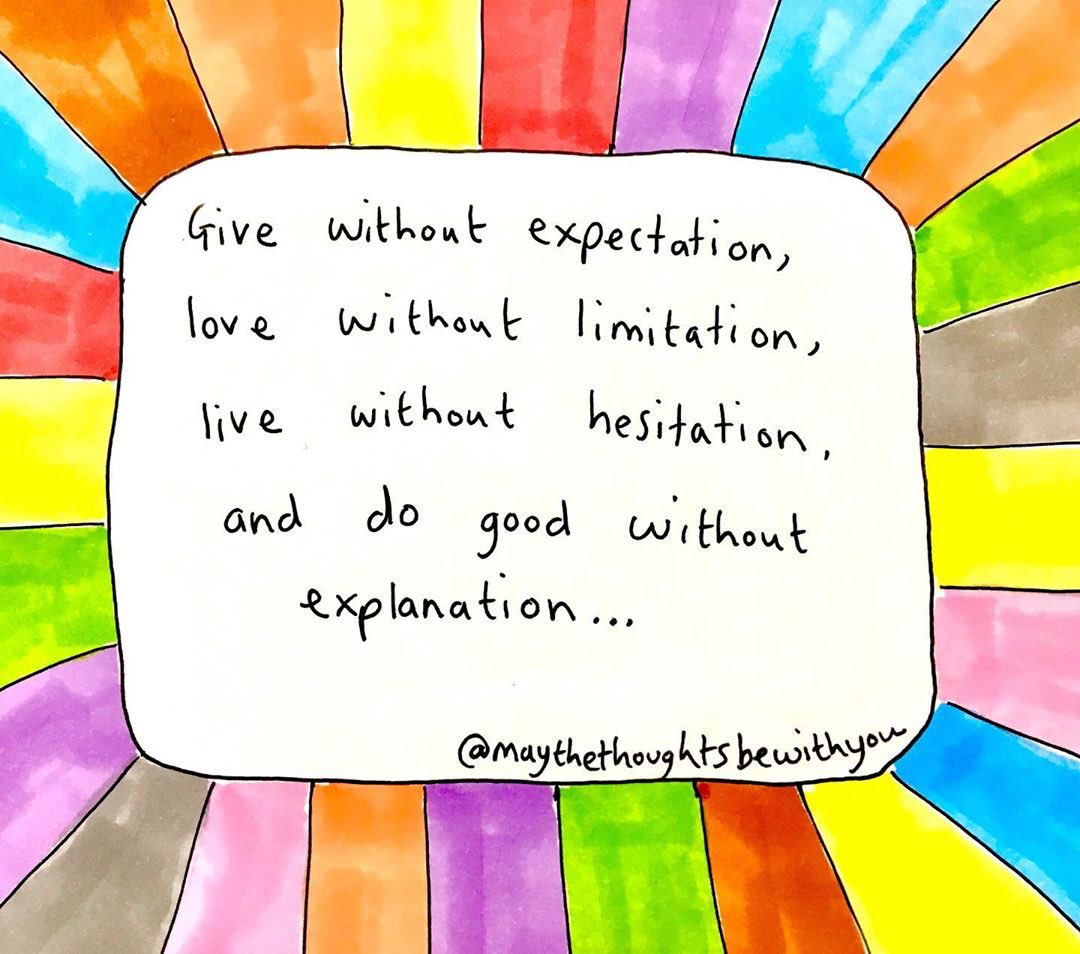 Give without expectation,
love without limitation,
live without hesitation,
and do good without
explanation...
@maythethoughtsbewithyou